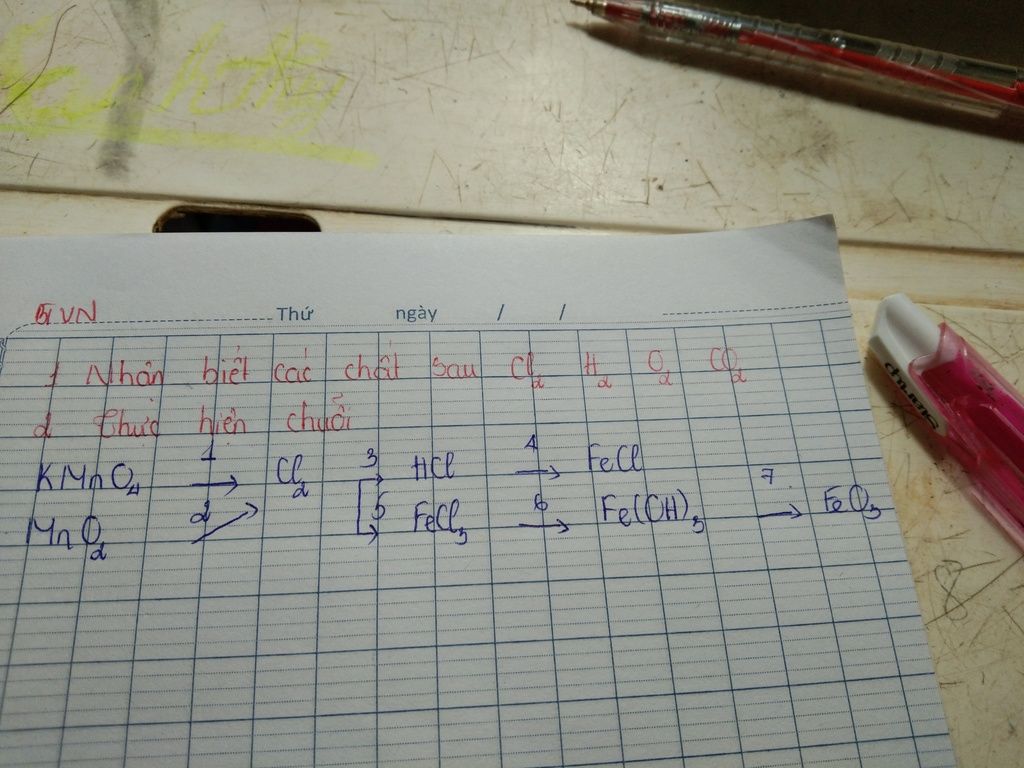 BTVN Thứ ngày / /
1 Nhận biết các chất sau Cl2 H2 O2 CO2
2 Thực hiện chuỗi
KMnO4 1→ Cl2 3→ HCl 4→ FeCl
MnO2 2→ 5→ FeCl3 6→ Fe(OH)3 7→ FeO3